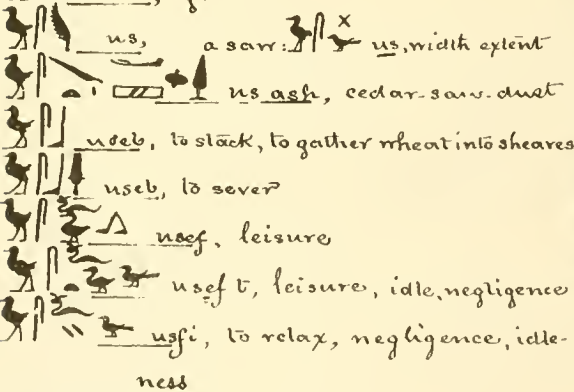 us, a saw: us, width extent
us ash, cedar-saw-dust
useb, to stack, to gather wheat into sheaves
useb, to sever
usef, leisure
usef t, leisure, idle, negligence
usfi, to relax, negligence, idle-
ness